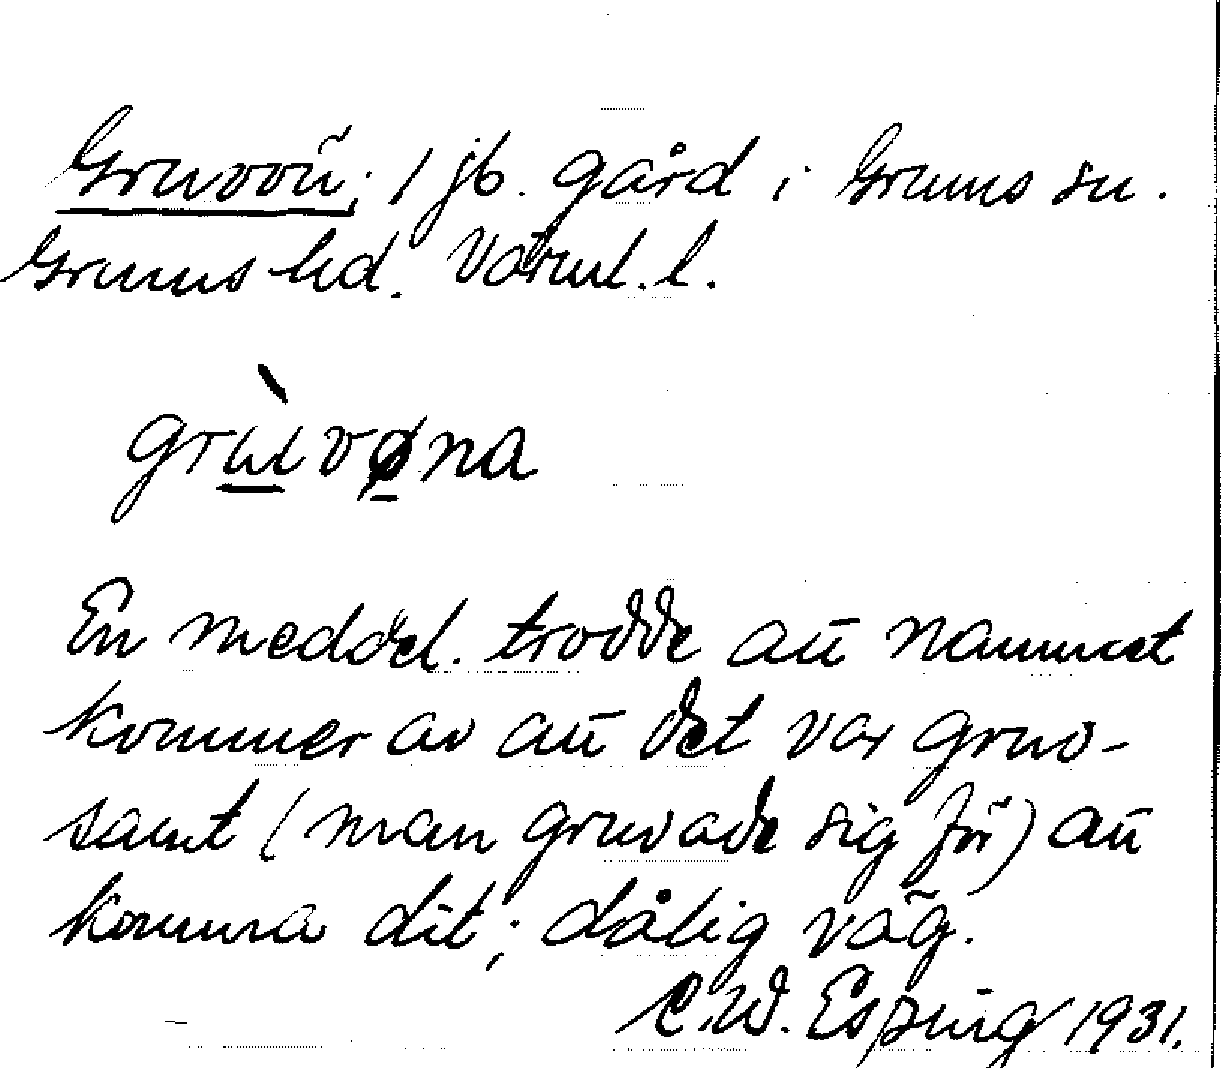 Gruvön; 1 jb. gård i Grums sn.
Grums hd. Värml. l.
grùvøna
En meddel. trodde att namnet
kommer av att det var gruv-
samt (man gruvade sig för) att
komma dit; dålig väg.
C.W. Esping 1931.